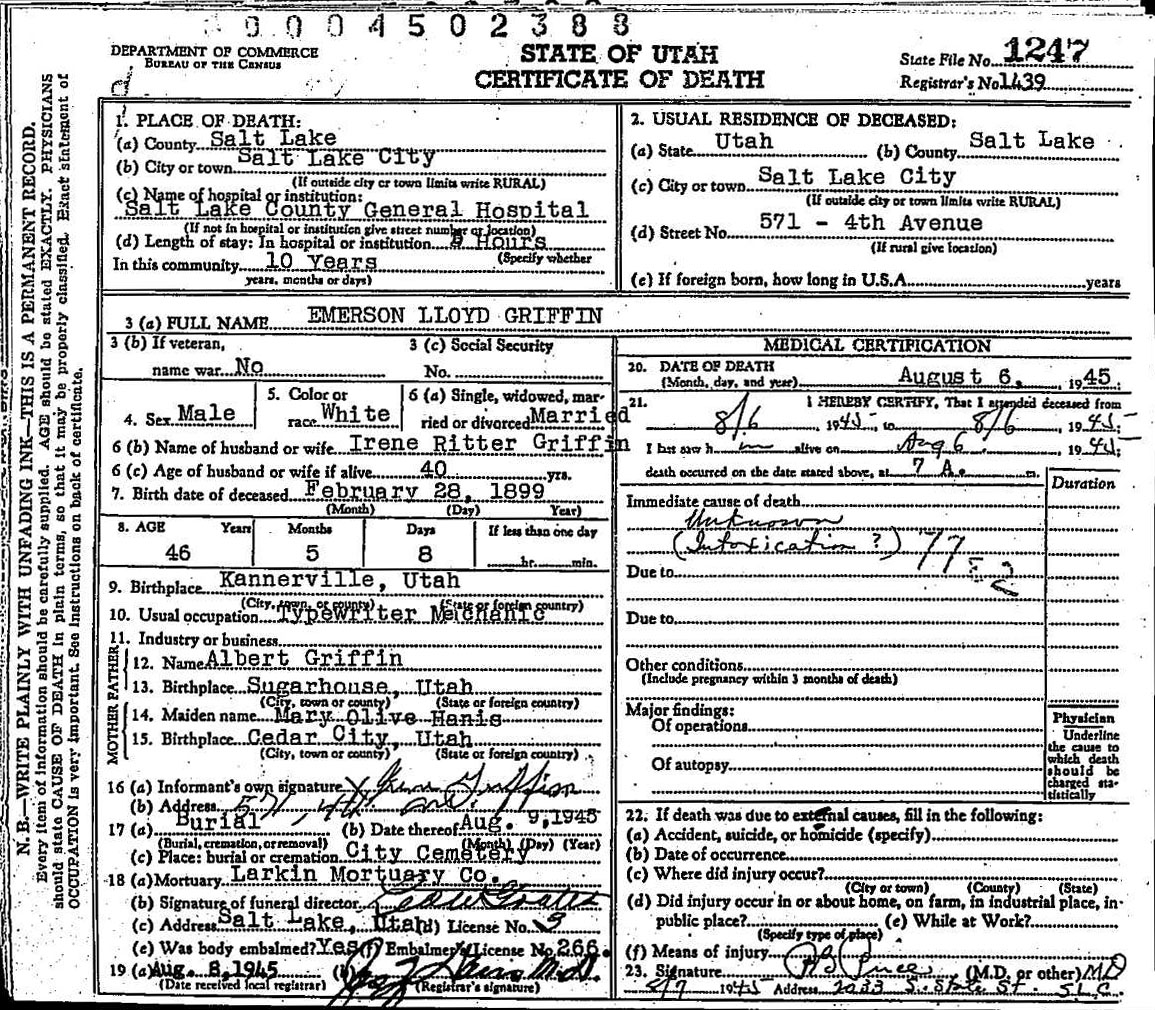 0004502388
DEPARTMENT OF COMMERCE
BUREAU OF THE CENSUS
STATE OF UTAH
CERTIFICATE OF DEATH
State File No. 1247
Registrar's No. 1439
N. B.—WRITE PLAINLY WITH UNFADING INK—THIS IS A PERMANENT RECORD.
Every item of information should be carefully supplied. AGE should be stated EXACTLY. PHYSICIANS
should state CAUSE OF DEATH in plain terms, so that it may be properly classified. Exact statement of
OCCUPATION is very important. See instructions on back of certificate.
1. PLACE OF DEATH:
(a) County Salt Lake
(b) City or town Salt Lake City
(If outside city or town limits write RURAL)
(c) Name of hospital or institution:
Salt Lake County General Hospital
(If not in hospital or institution give street number or location)
(d) Length of stay: In hospital or institution Hours
(Specify whether
In this community 10 Years
years, months or days)
2. USUAL RESIDENCE OF DECEASED:
(a) State Utah (b) County Salt Lake
(c) City or town Salt Lake City
(If outside city or town limits write RURAL)
(d) Street No. 571 - 4th Avenue
(If rural give location)
(e) If foreign born, how long in U.S.A. years
3 (a) FULL NAME EMERSON LLOYD GRIFFIN
3 (b) If veteran, 3 (c) Social Security
name war No No.
4. Sex Male 5. Color or race White 6 (a) Single, widowed, married or divorced Married
6 (b) Name of husband or wife Irene Ritter Griffin
6 (c) Age of husband or wife if alive 40 yrs.
7. Birth date of deceased February 28, 1899
(Month) (Day) Year)
8. AGE Years Months Days If less than one day
46 5 8 hr. min.
9. Birthplace Kannerville, Utah
(City, town, or county) (State or foreign country)
10. Usual occupation Typewriter Mechanic
11. Industry or business
FATHER
12. Name Albert Griffin
13. Birthplace Sugarhouse, Utah
(City, town or county) (State or foreign country)
MOTHER
14. Maiden name Mary Olive Hanis
15. Birthplace Cedar City, Utah
(City, town or county) (State or foreign country)
16 (a) Informant's own signature X Irene Griffin
(b) Address 571, 4th Ave.
17 (a) Burial (b) Date thereof Aug. 9, 1945
(Burial, cremation, or removal) (Month) (Day) (Year)
(c) Place: burial or cremation City Cemetery
18 (a) Mortuary Larkin Mortuary Co.
(b) Signature of funeral director
(c) Address Salt Lake, Utah (d) License No. 9
(e) Was body embalmed? Yes (f) Embalmer's License No. 266.
19 (a) Aug. 8, 1945 (b) M.D.
(Date received local registrar) (Registrar's signature)
MEDICAL CERTIFICATION
20. DATE OF DEATH
(Month, day, and year) August 6, 1945.
21. I HEREBY CERTIFY, That I attended deceased from
8/6, 1945, to 8/6, 1945
I last saw h im alive on Aug 6, 1945
death occurred on the date stated above, at 7 A. m.
Duration
Immediate cause of death
Unknown
(Intoxication ?) 77
Due to
Due to
Other conditions
(Include pregnancy within 3 months of death)
Major findings:
Of operations
Of autopsy
Physician
Underline
the cause to
which death
should be
charged sta-
tistically
22. If death was due to external causes, fill in the following:
(a) Accident, suicide, or homicide (specify)
(b) Date of occurrence
(c) Where did injury occur?
(City or town) (County) (State)
(d) Did injury occur in or about home, on farm, in industrial place, in-
public place? (e) While at Work?
(Specify type of place)
(f) Means of injury
23. Signature Price (M.D. or other) MD
8/7 1945 Address 2033 S. State St. S.L.C.